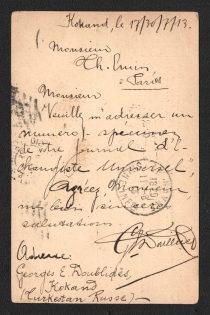 Kokand, le 17/30/7/13.
Monsieur
Ch. 
à Paris
Monsieur
Veuillez m'adresser un
numero-specimen
de votre journal d'E-
"Universel",
Agréez, Monsieur
mes bien sincères
salutations
Adresse:
Georges E. Doublidès,
Kokand
(Turkestan Russe)